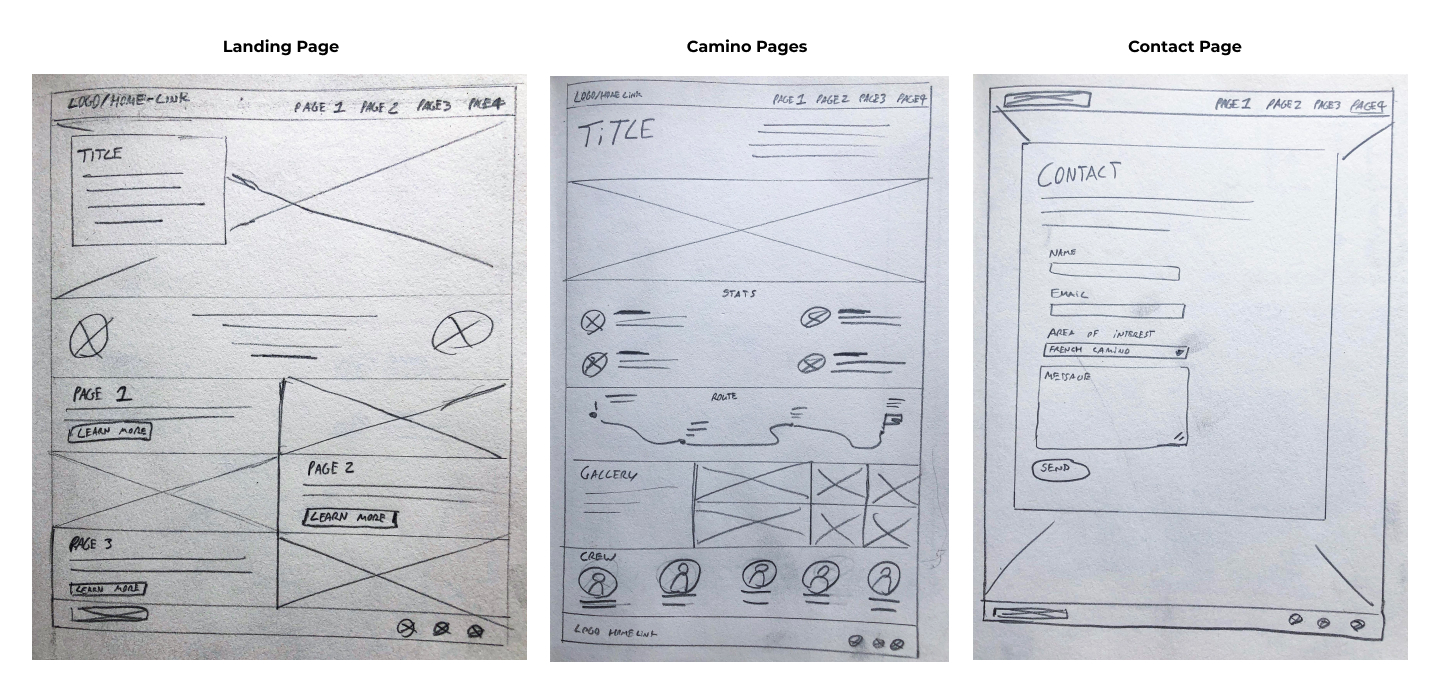 Landing Page
LOGO/HOME-LINK
PAGE 1 PAGE 2 PAGE3 PAGE4
TITLE
PAGE 1
LEARN MORE
PAGE 2
LEARN MORE
PAGE 3
LEARN MORE
Camino Pages
LOGO/HOME LINK
PAGE 1 PAGE 2 PAGE3 PAGE4
TITLE
STATS
ROUTE
GALLERY
CREW
LOGO HOME LINK
Contact Page
PAGE 1 PAGE 2 PAGE3 PAGE4
CONTACT
NAME
EMAIL
AREA OF INTEREST
FRENCH CAMINO
MESSAGE
SEND